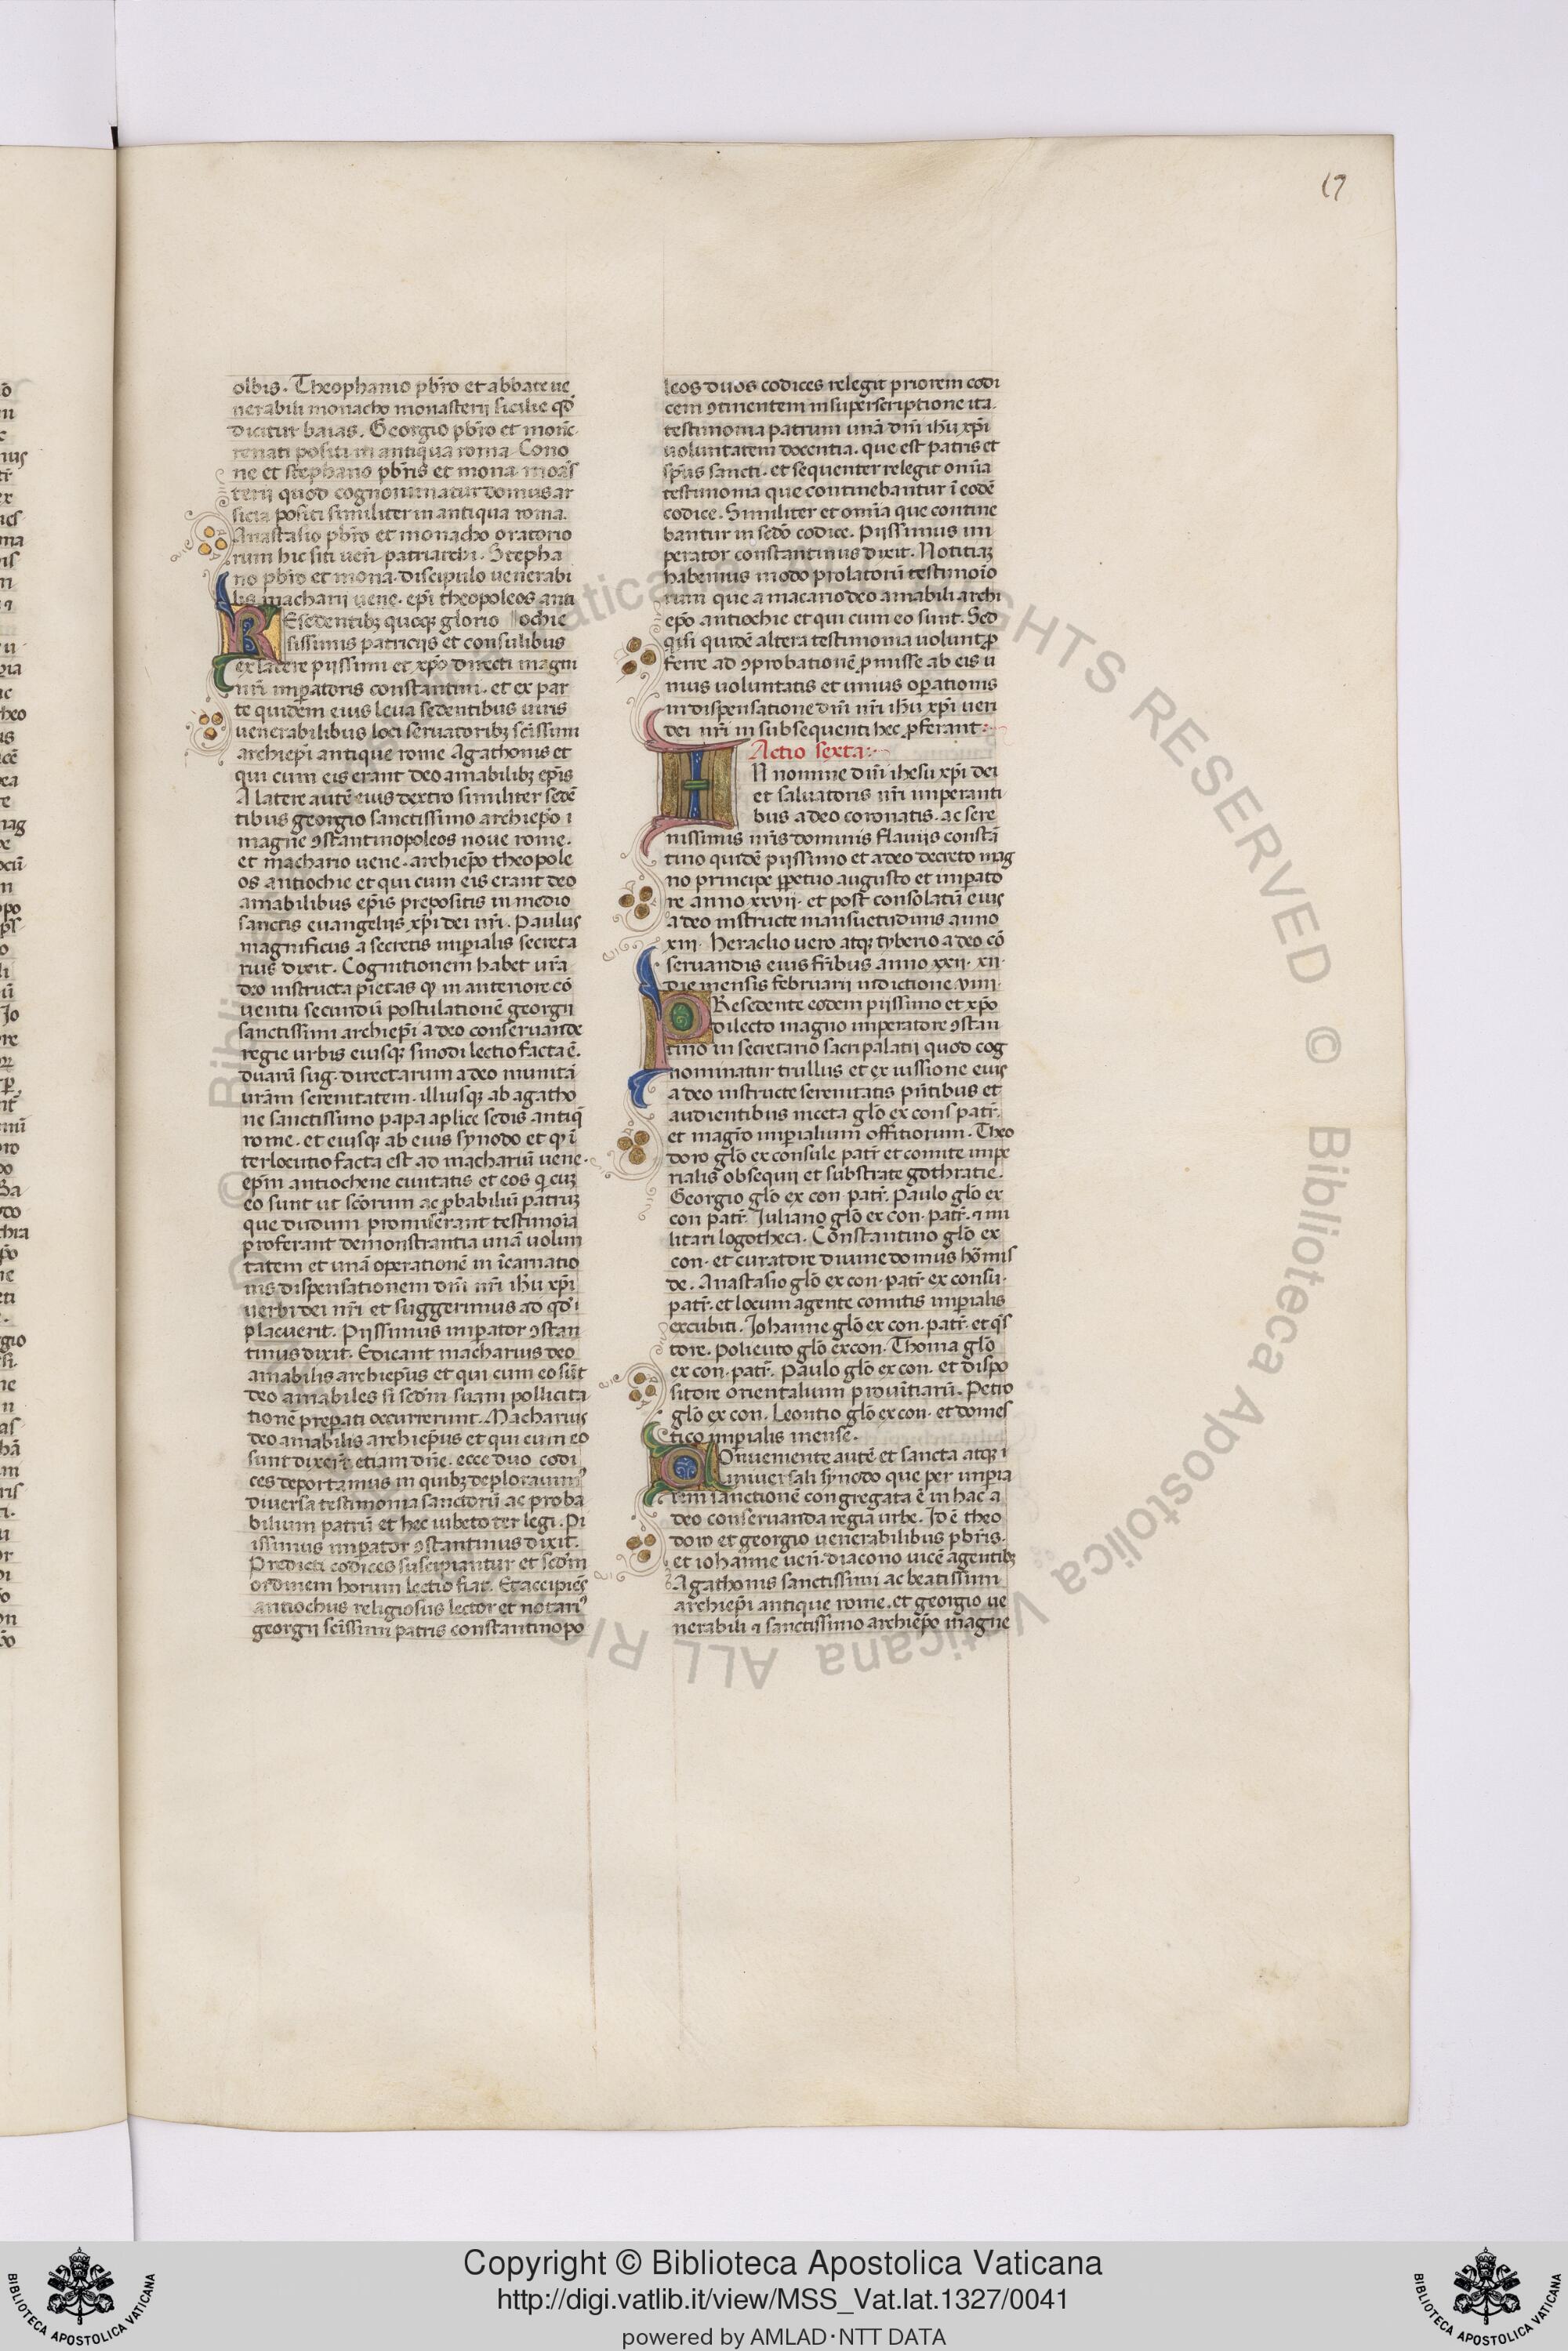 17
olbis. Theophanio pbr̃o et abbate ue
nerabili monacho monasterij sicilie qđ
dicitur baias. Georgio pbr̃o et monc̃
renati positi in antiqua roma. Cono
ne et stephano pbr̃is et mona. moãs
terij quod cognominatur domus ar
sicia positi similiter in antiqua roma.
Anastasio pbr̃o et monacho oratorio
rum hic siti ueñ. patriarchi. Stepha
no pbr̃o et mona. discipulo uenerabi
lis macharij uene. ep̃i theopoleos anti
Esedentibꝫ quoqꝫ glorio ochie
sissimis patricijs et consulibus
ex latere pijssimi et xp̃o directi magni
nr̃i imp̱atoris constantini. et ex par
te quidem eius leua sedentibus uiris
uenerabilibus loci seruatoribꝫ sc̃issimi
archiep̃i antique rome Agathonis et
qui cum eis erant deo amabilibꝫ ep̃is
A latere autẽ eius dextro similiter sedẽ
tibus georgio sanctissimo archiep̃o i
magne ꝯstantinopoleos noue rome.
et machario uene. archiep̃o theopole
os antiochie et qui cum eis erant deo
amabilibus ep̃is prepositis in medio
sanctis euangelijs xp̃i dei nr̃i. Paulus
magnificus a secretis imp̱ialis secreta
rius dixit. Cognitionem habet ur̃a
deo instructa pietas ꝙ in anteriore cõ
uentu secundũ postulationẽ georgij
sanctissimi archiep̃i a deo conseruande
regie urbis eiusqꝫ sinodi lectio facta ẽ.
duarũ sug. directarum a deo munitã
uram serenitatem. illiusqꝫ ab agatho
ne sanctissimo papa aplice sedis antiq̃
rome. et eiusqꝫ ab eius synodo et ꝙ ĩ
terlocutio facta est ad machariũ uene.
ep̃m antiochene ciuitatis et eos qi cuꝫ
eo sunt ut sc̃orum ac ꝓbabiliũ patruꝫ
que dudum promiserant testimoĩa
proferant demonstrantia unã uolun
tatem et unã operationẽ in ĩcarnatio
nis dispensationem dñi nr̃i ihũ xp̃i
uerbi dei nr̃i et suggerimus ad qđ i
placuerit. Pijssimus imp̱ator ꝯstan
tinus dixit. Edicant macharius deo
amabilis archiep̃us et qui cum eo sũt
deo amabiles si sedm̃ suam pollicita
tionẽ prep̱ati occurrerunt. Macharius
deo amabilis archiep̃us et qui cum eo
sunt dixer̃t etiam dñe. ecce duo codi
ces deportamus in quibꝫ deplorauimꝰ
diuersa testimonia sanctorũ ac proba
bilium patrũ et hec iubeto ter legi. Pi
issimus imp̱ator ꝯstantinus dixit.
Predicti codices suscipiantur et sedm̃
ordinem horum lectio fiat. Et accipiẽs
antiochus religiosus lector et notariꝰ
georgij sc̃issimi patris constantinopo
leos duos codices relegit priorem codi
cem ꝯtinentem in superscriptione ita.
testimonia patrum unã dñi ihũ xp̃i
uoluntatem docentia. que est patris et
sp̃us sancti. et sequenter relegit om̃ia
testimonia que continebantur ĩ eodẽ
codice. Similiter et om̃ia que contine
bantur in sedo codice. Pijssimus im
perator constantinus dixit. Notitiaꝫ
habemus modo prolatorũ testimoĩo
rum que a macario deo amabili archi
ep̃o antiochie et qui cum eo sunt. Sed
qisi quidẽ altera testimonia uolunt ꝓ
ferre ad ꝯprobationẽ ꝓmisse ab eis u
nius uoluntatis et unius op̱ationis
in dispensatione dñi nr̃i ihũ xp̃i ueri
dei nr̃i in subsequenti hec ꝓferant:
Actio sexta:
N nomine dñi ihesu xp̃i dei
et saluatoris nr̃i imperanti
bus a deo coronatis. ac sere
nissimis nr̃is dominis flauijs constã
tino quidẽ pijssimo et a deo decreto mag
no principe ꝑpetuo augusto et imp̱ato
re anno xxvij. et post consolatũ eius
a deo instructe mansuetudinis anno
xiij. Heraclio uero atqꝫ tyberio a deo cõ
seruandis eius fr̃ibus anno xxij. xij.
die mensis februarij indictione viiij.
Resedente eodem pijssimo et xp̃o
dilecto magno imperatore ꝯstan
tino in secretario sacri palatij quod cog
nominatur trullus et ex iussione eius
a deo instructe serenitatis pñtibus et
audientibus niceta glõ ex cons patr̃.
et magr̃o imp̱ialium offitiorum. Theo
doro glõ ex consule patr̃ et comite impe
rialis obsequij et substrate gothratie.
Georgio glõ ex con. patr̃. Paulo glõ ex
con patr̃. Iuliano glõ ex con. patr̃. ⁊ mi
litari logotheca. Constantino glõ ex
con. et curatore diuine domus hõmis
de. Anastasio glõ ex con. patr̃. ex consu.
patr̃. et locum agente comitis imp̱ialis
excubiti. Iohanne glõ ex con. patr̃. et q̃s
tore. Polieuto glõ excon. Thoma glõ
ex con. patr̃. Paulo glõ ex con. et dispo
sitore orientalium prouĩtiarũ. Petro
glõ ex con. Leontio glõ ex con. et domes
tico imp̱ialis mense.
Onueniente autẽ et sancta atqꝫ i
uniuersali synodo que per imp̱ia
lem sanctionẽ congregata ẽ in hac a
deo conseruanda regia urbe. Id ẽ theo
doro et georgio uenerabilibus pbr̃is.
et iohanne ueñ. diacono uicẽ agentibꝫ
Agathonis sanctissimi ac beatissimi
archiep̃i antique rome. et georgio ue
nerabili ⁊ sanctissimo archiep̃o magne
Copyright © Biblioteca Apostolica Vaticana
http://digi.vatlib.it/view/MSS_Vat.lat.1327/0041
powered by AMLAD·NTT DATA
BIBLIOTECA APOSTOLICA VATICANA
BIBLIOTECA APOSTOLICA VATICANA
© Biblioteca Apostolica Vaticana ALL RIGHTS RESERVED
© Biblioteca Apostolica Vaticana ALL RIG